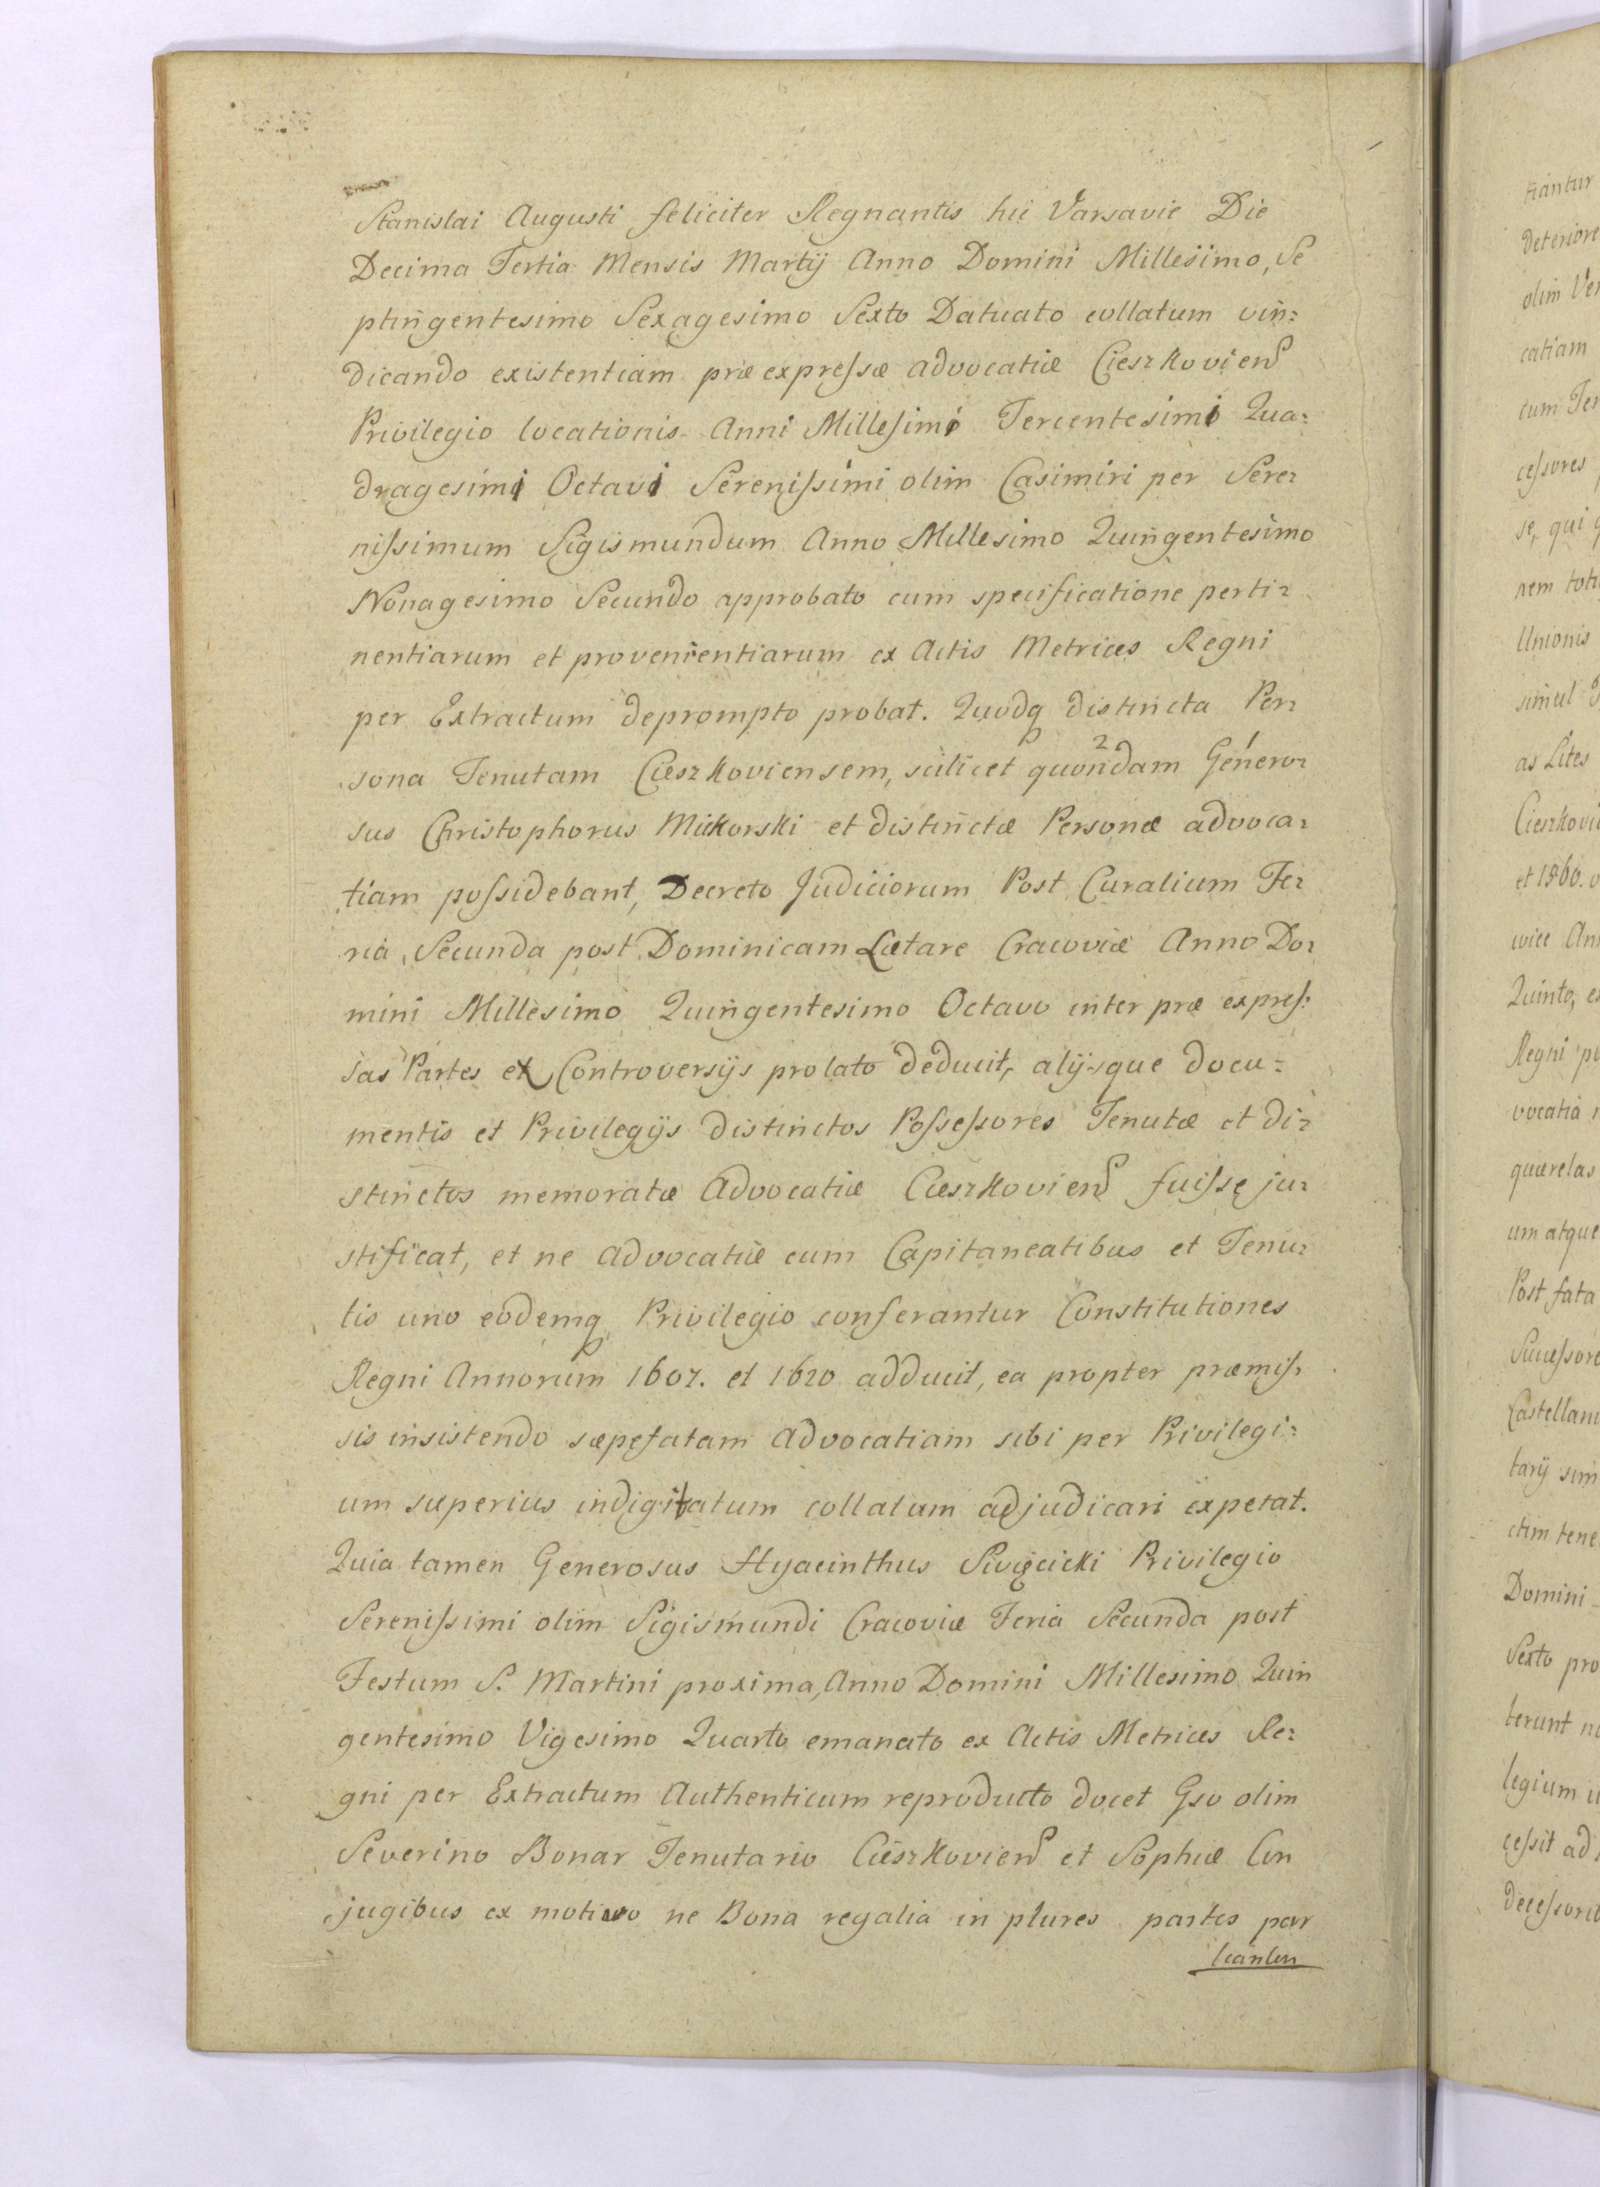 Stanislai Augusti feliciter Regnantis hic Varsavie Die
Decima Tertia Mensis Martij Anno Domini Millesimo, Se
ptingentesimo Sexagesimo Sexto Datuato collatum vin:
dicando existentiam præ expressæ advocatiæ Cieszkoviens
Privilegio locationis Anni Millesimi Tercentesimi Qua:
dragesimi Octavi Serenissimi olim Casimiri per Sere:
nissimum Sigismundum Anno Millesimo Quingentesimo
Nonagesimo Secundo approbato cum specificatione perti:
nentiarum et provenientiarum ex Actis Metrices Regni
per Extractum deprompto probat. Quodq distincta Per:
sona Tenutam Cieszkoviensem, scilicet quondam Genero:
sus Christophorus Mickorski et distinctæ Personæ advoca:
tiam possidebant, Decreto Judiciorum Post Curalium Fe:
ria Secunda post Dominicam Lætare Cracoviæ Anno Do:
mini Millesimo Quingentesimo Octavo inter præ expres:
sas Partes ex Controversijs prolato deducit, alijsque docu:
mentis et Privilegijs distinctos Possessores Tenutæ et di:
stinctos memoratæ Advocatiæ Cieszkoviens fuisse ju:
stificat, et ne Advocatiæ cum Capitaneatibus et Tenu:
tis uno eodemq Privilegio conferantur Constitutiones
Regni Annorum 1607. et 1620 adducit, ea propter præmis:
sis insistendo sæpefatam Advocatiam sibi per Privilegi:
um superius indigitatum collatam adjudicari expetat.
Quia tamen Generosus Hyacinthus Swięcicki Privilegio
Serenissimi olim Sigismundi Cracoviæ Feria Secunda post
Festum S. Martini proxima, Anno Domini Millesimo Quin
gentesimo Vigesimo Quarto emanato ex Actis Metrices Re:
gni per Extractum Authenticum reproducto docet Gso olim
Severino Bonar Tenutario Cieszkoviens et Sophiæ Con
jugibus ex motivo ne Bona regalia in plures partes par
tiantur
tiantur
deteriore
olim Ver
catiam
cum Ter
cessores
se, qui q
nem toti
Unionis
simul
as Lites
Cieszkovi
et 1860.
vice An
Quinto, e
Regni p
vocatia
quærelas
um atque
Post fata
Successore
Castellan
tarij sim
ctim tene
Domini
Sexto pro
terunt n
legium
cessit ad
decessorib